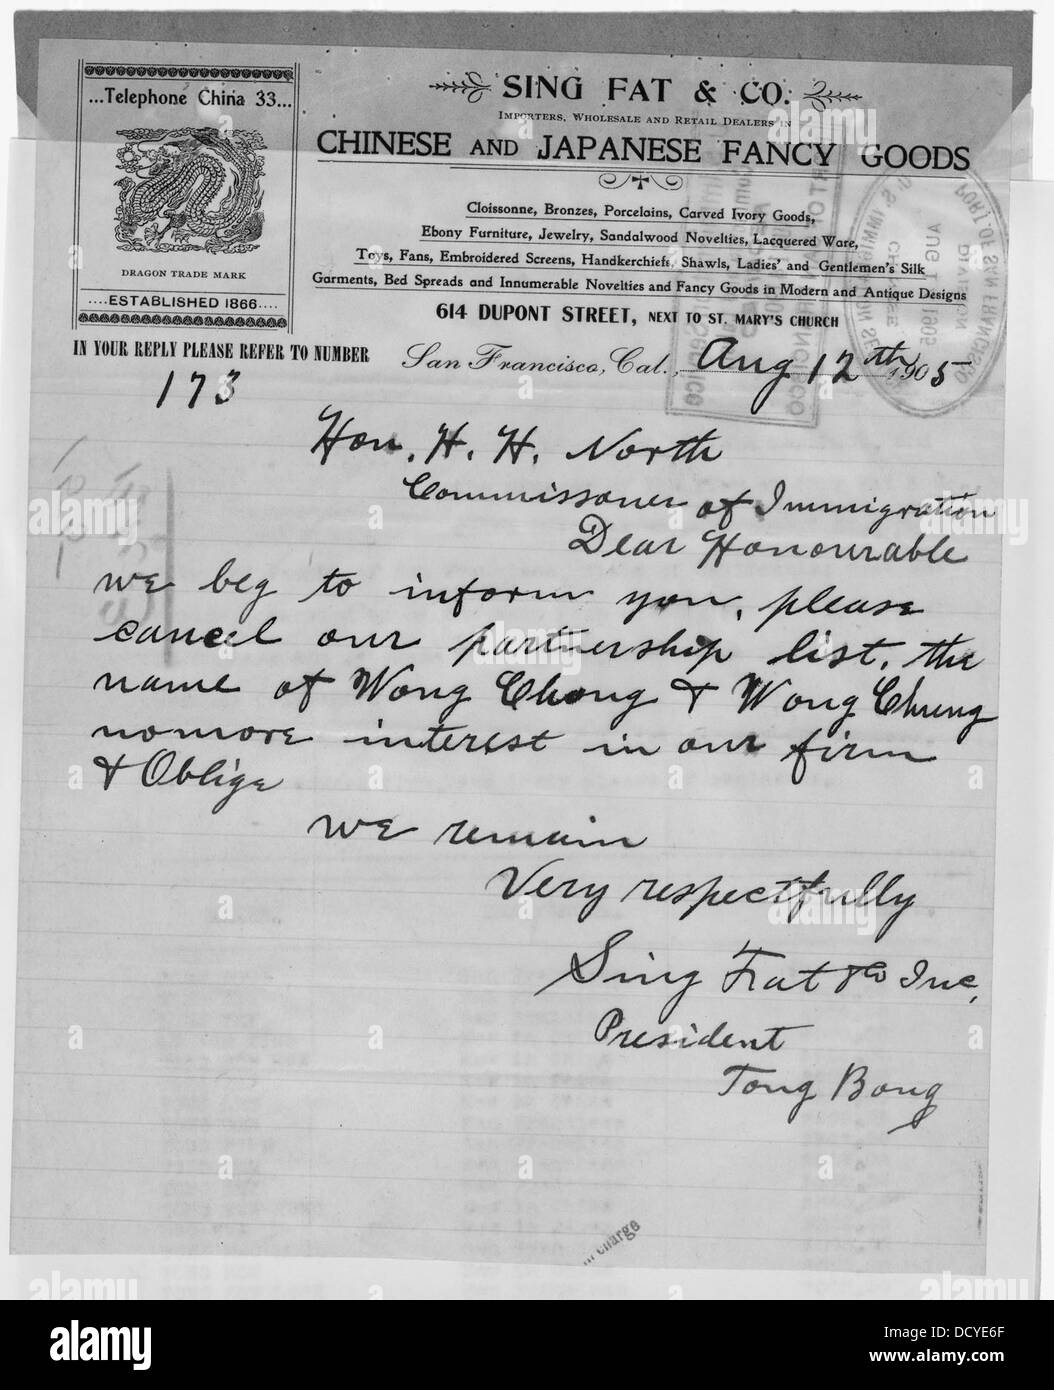 ...Telephone China 33...
DRAGON TRADE MARK
....ESTABLISHED 1866....
SING FAT & CO.
IMPORTERS, WHOLESALE AND RETAIL DEALERS IN
CHINESE AND JAPANESE FANCY GOODS
Cloissonne, Bronzes, Porcelains, Carved Ivory Goods,
Ebony Furniture, Jewelry, Sandalwood Novelties, Lacquered Ware,
Toys, Fans, Embroidered Screens, Handkerchiefs, Shawls, Ladies' and Gentlemen's Silk
Garments, Bed Spreads and Innumerable Novelties and Fancy Goods in Modern and Antique Designs
614 DUPONT STREET, NEXT TO ST. MARY'S CHURCH
IN YOUR REPLY PLEASE REFER TO NUMBER
173
San Francisco, Cal., Aug 12th 1905
Hon. H. H. North
Commissoner of Immigration
Dear Honourable
we beg to inform you, please
cancel our partnership list, the
name of Wong Chong & Wong Chung
nomore interest in our firm
& Oblige
we remain
Very respectfully
Sing Fat & Co Inc,
President
Tong Bong
PORT OF SAN FRANCISCO
DIVISION
AUG 1 1905
CHINESE
U.S. IMMIGRATION SERVICE
in charge
alamy
Image ID: DCYE6F
www.alamy.com